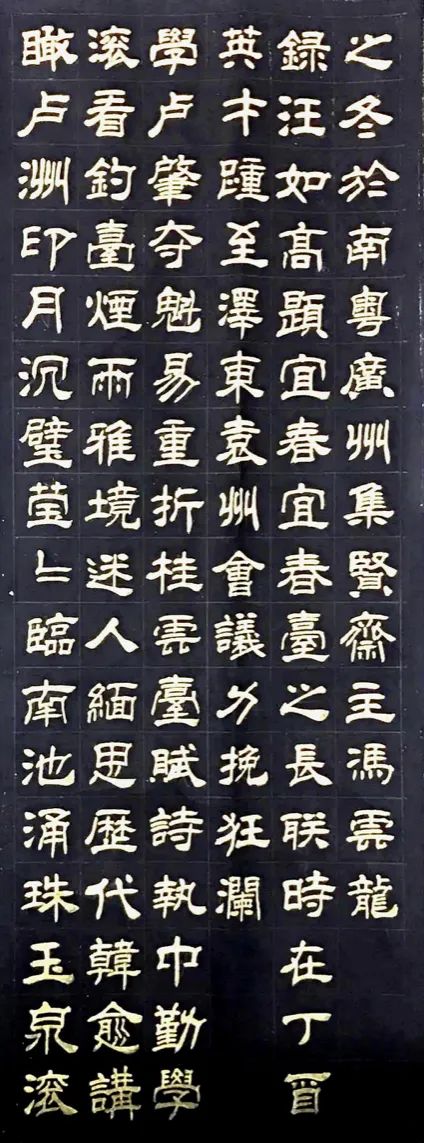 瞰卢洲印月沉璧莹〻臨南池涌珠玉泉滚
滚看釣臺煙雨雅境迷人緬思歴代韓愈講
學卢肇夺魁易重折桂雲臺賦詩執巾勤學
英才踵至澤東袁州會議力挽狂瀾
録汪如高題宜春宜春臺之長联時在丁酉
之冬於南粤廣州集賢齋主馮雲龍